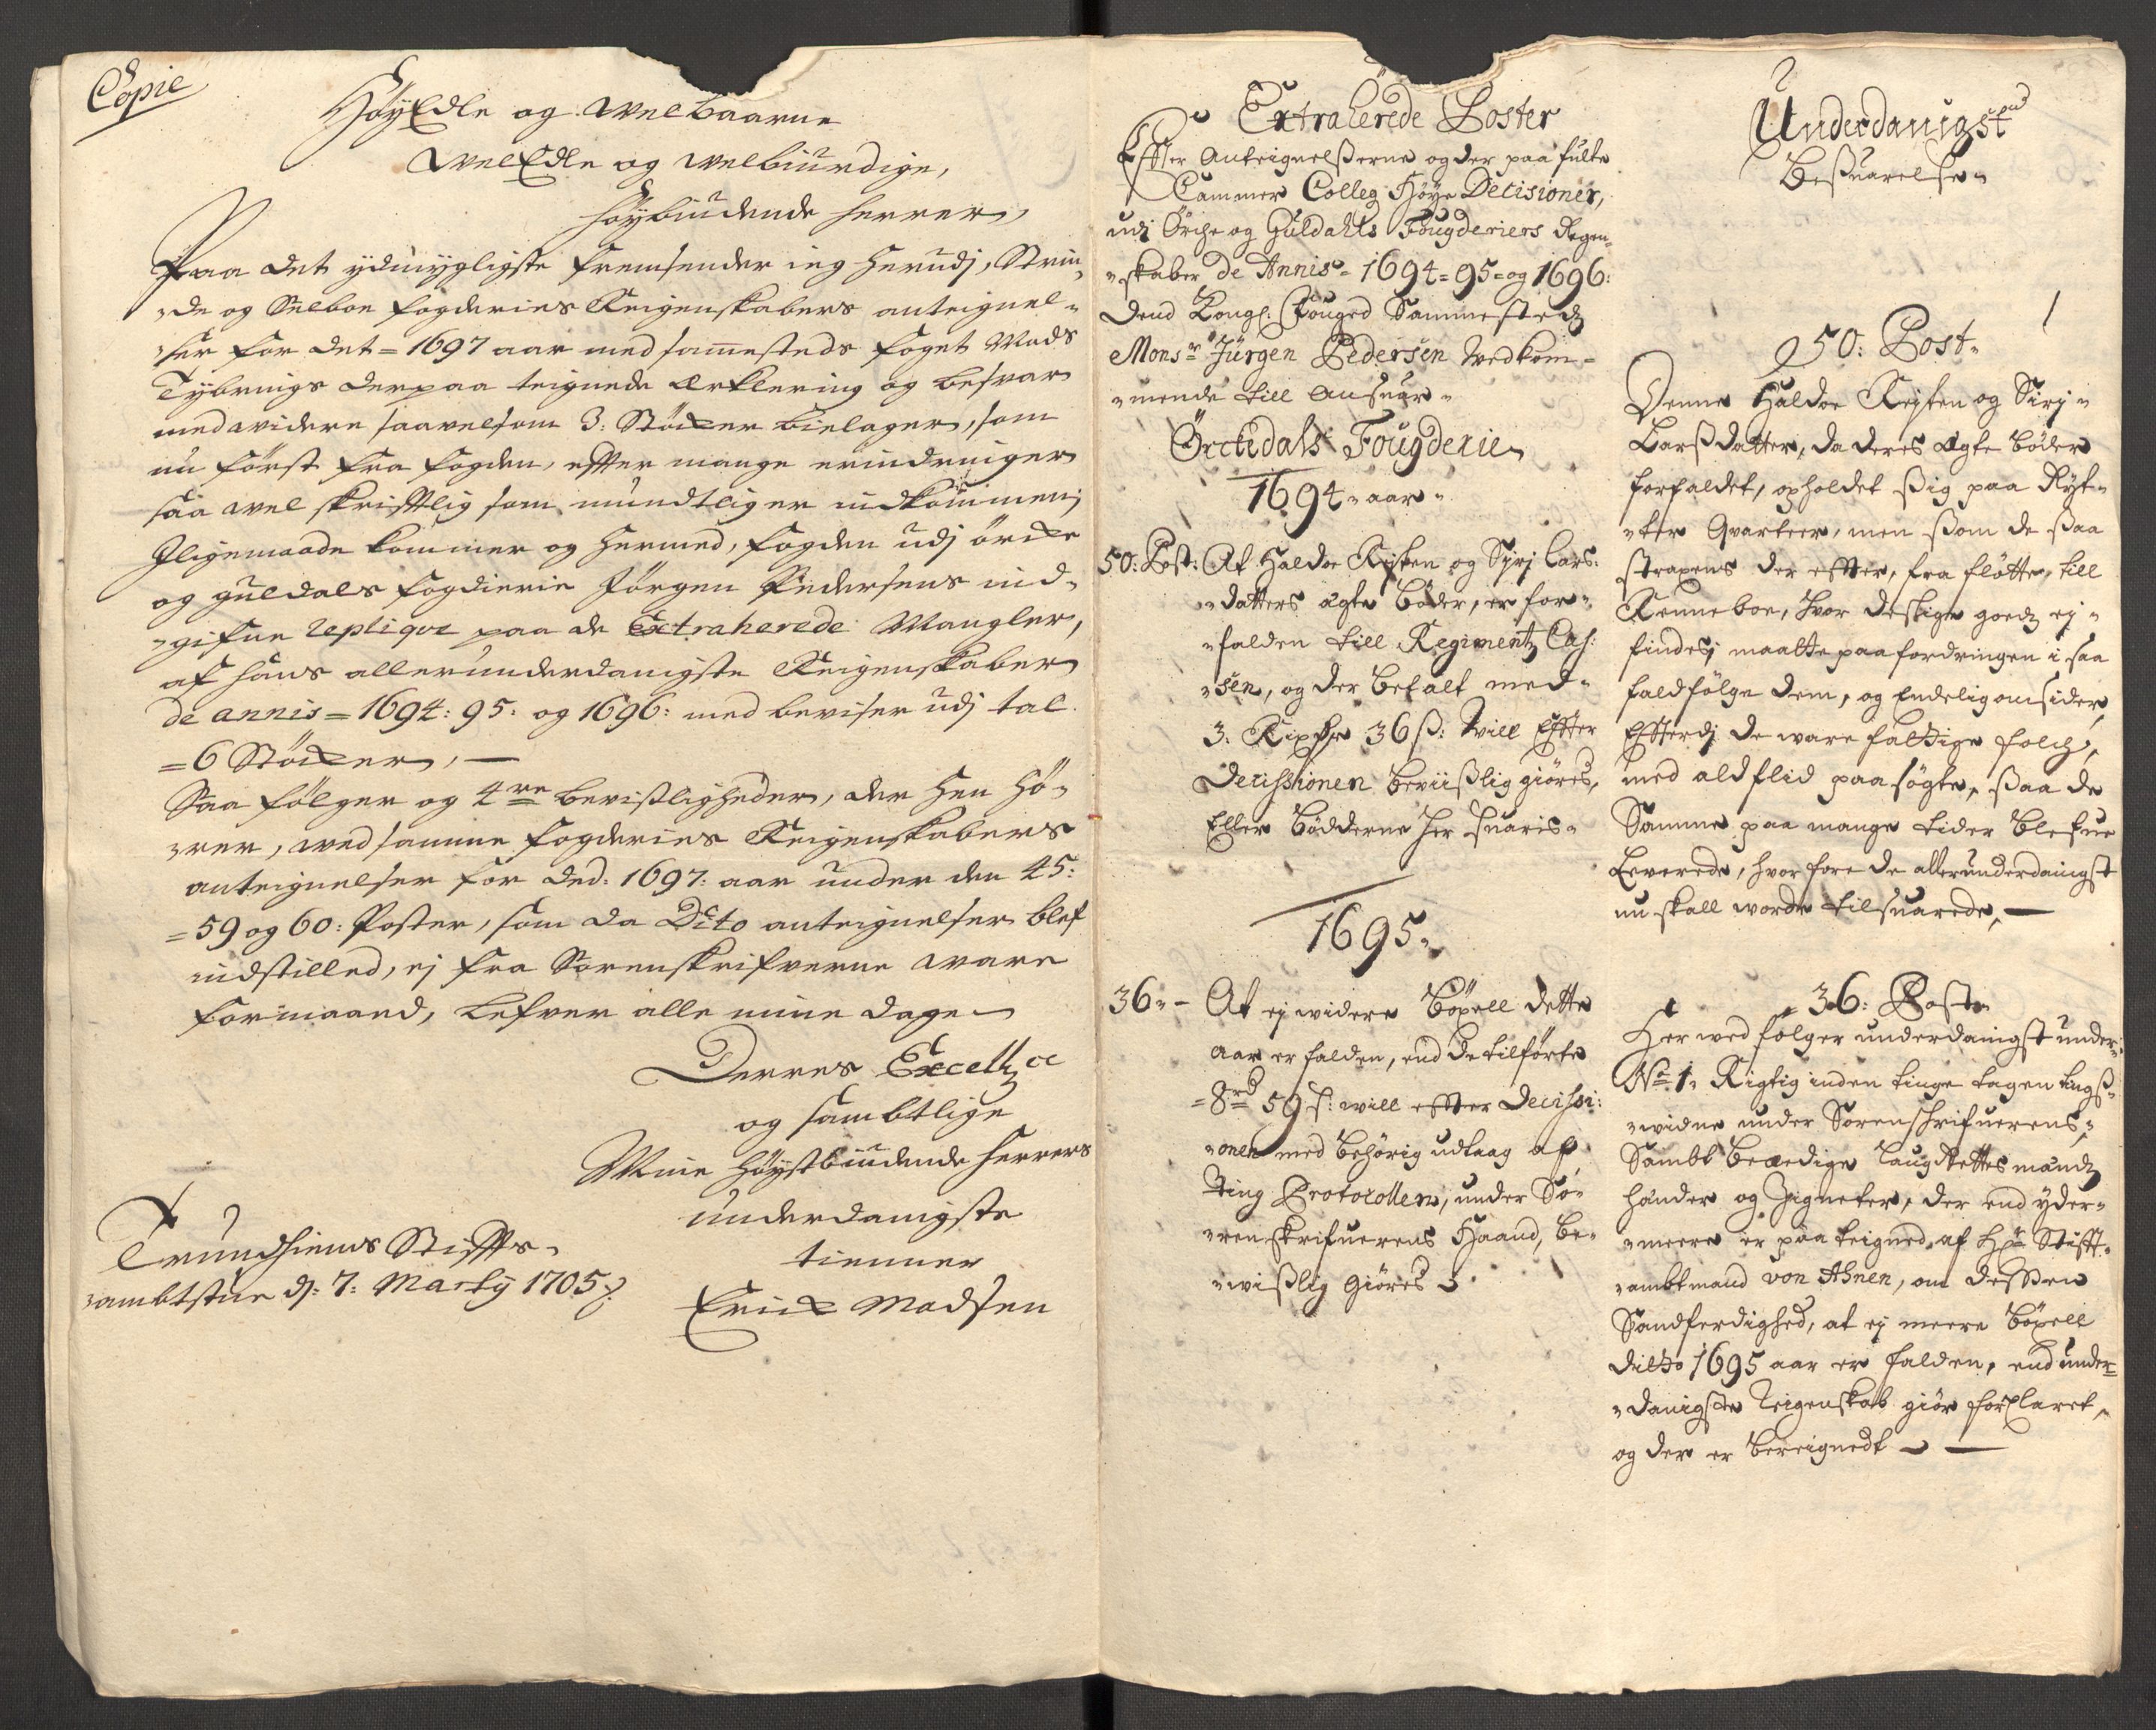 Copie
HöyEdle og Welbaarne
WelEdle og Welbiurdige,
Höybiudende Herrer,
Paa det ydmygligste fremsender ieg herudj, Strin„
„de og Selboe fogderies Reigenskabers anteignel„
„ser for det = 1697 aar med sammesteds foged Mads
Tybrings derpaa teignede erklering og besvar
med widere saavelsom 3: Stöcker bielager, som
nu först fra fogden, effter mange erindringer
saa wel skrifftlig som mundtlig er indkommen;
Jligemaade kommer og hermed, fogden udj örcke
og guldals fogderie Jörgen Pedersens ind„
„gifne replique paa de Extraherede Mangler,
af hans allerunderdanigste Reigenskaber
de annis = 1694: 95: og 1696: med beviser udj tal
= 6 Stöcker, —
Saa fölger og 4re bevisligheder, der hen hö„
„rer, wed samme fogderies Reigenskabers
anteignelser for Ded: 1697: aar under den 45:
= 59 og 60: Poster, som da Dito anteignelser blef
indstilled, ej fra Sorenskrifverne ware
formaaed, Lefver alle mine dage
Derres Excell:ce
og sambtlige
Mine Höystbiudende Herrers
underdanigste
tienner
Erick Madsen
Trundhiems Stiffts„
„ambtstue d: 7: Martij 1705
Extraherede Poster
Effter Anteignelsserne og der paa fulte
Cammer Colleg Höye Decisioner,
udj Örche og Guldahls Fougderiers Regen„
„skaber de Annis = 1694 = 95 = og 1696:
Dend Kongl: Fouged Sammestedz
Monsr Jürgen Pedersen Vedkom„
„mende till Ansuar„
Örchedahls Fougderie„
1694„aar„
50: Post: At Haldoe Rejsten og Syrj Lars:
„datters ægte böder, er for„
„falden till Regimentz Cas:
„sen, og der betalt med„
3: Rixdr 36 ß: Vill Effter
Decissionen beviisslig giöres,
Eller bödderne her suaris„
1695„
36„ – At ej widere böxell dette
aar er falden, end de tilförte
= 8rd 59 ß: will effter Decissi:
„onen med behörig udtaag af
Ting Protocollen, under So„
„renskrifuerens Haand, be„
„wisslig giöres
Underdanigst
Besuarelse„
1
50: Post„
Denne Haldoe Rejsten og Sirj„
Larssdatter, da deres ægte böder
forfaldet, opholdet ssig paa Ryt„
„ter Qvarteer, men ssom de ssaa
straxens der effter, fra flötte, till
Renneboe, hvor deslige goedz ej„
findes; maatte paafordringen i saa
fald fölge dem, og Endelig omsider,
Effterdj de ware fattige folch,
med ald flid paa sögte, ssaa de
Samme paa mange tider blefue
Leverede, hvorfore de allerunderdanigst
nu skall worde tilsuarede, —
36: Post„
Her wed fölger underdanigst under„
No 1„ Rigtig inden tinge tagen tingss„
„widne under Sorenschrifuerens,
Sambt beædige Laugrettesmændz
hænder og Zigneter, der end yder„
„mere er paa teigned, af Hr Stifft„
„ambtmand von Ahnen, om dessen
Sandferdighed, at ej meere böxell
ditto 1695 aar er falden, end under„
„danigste Reigenskab giör forklaret,
og der er bereignedt —